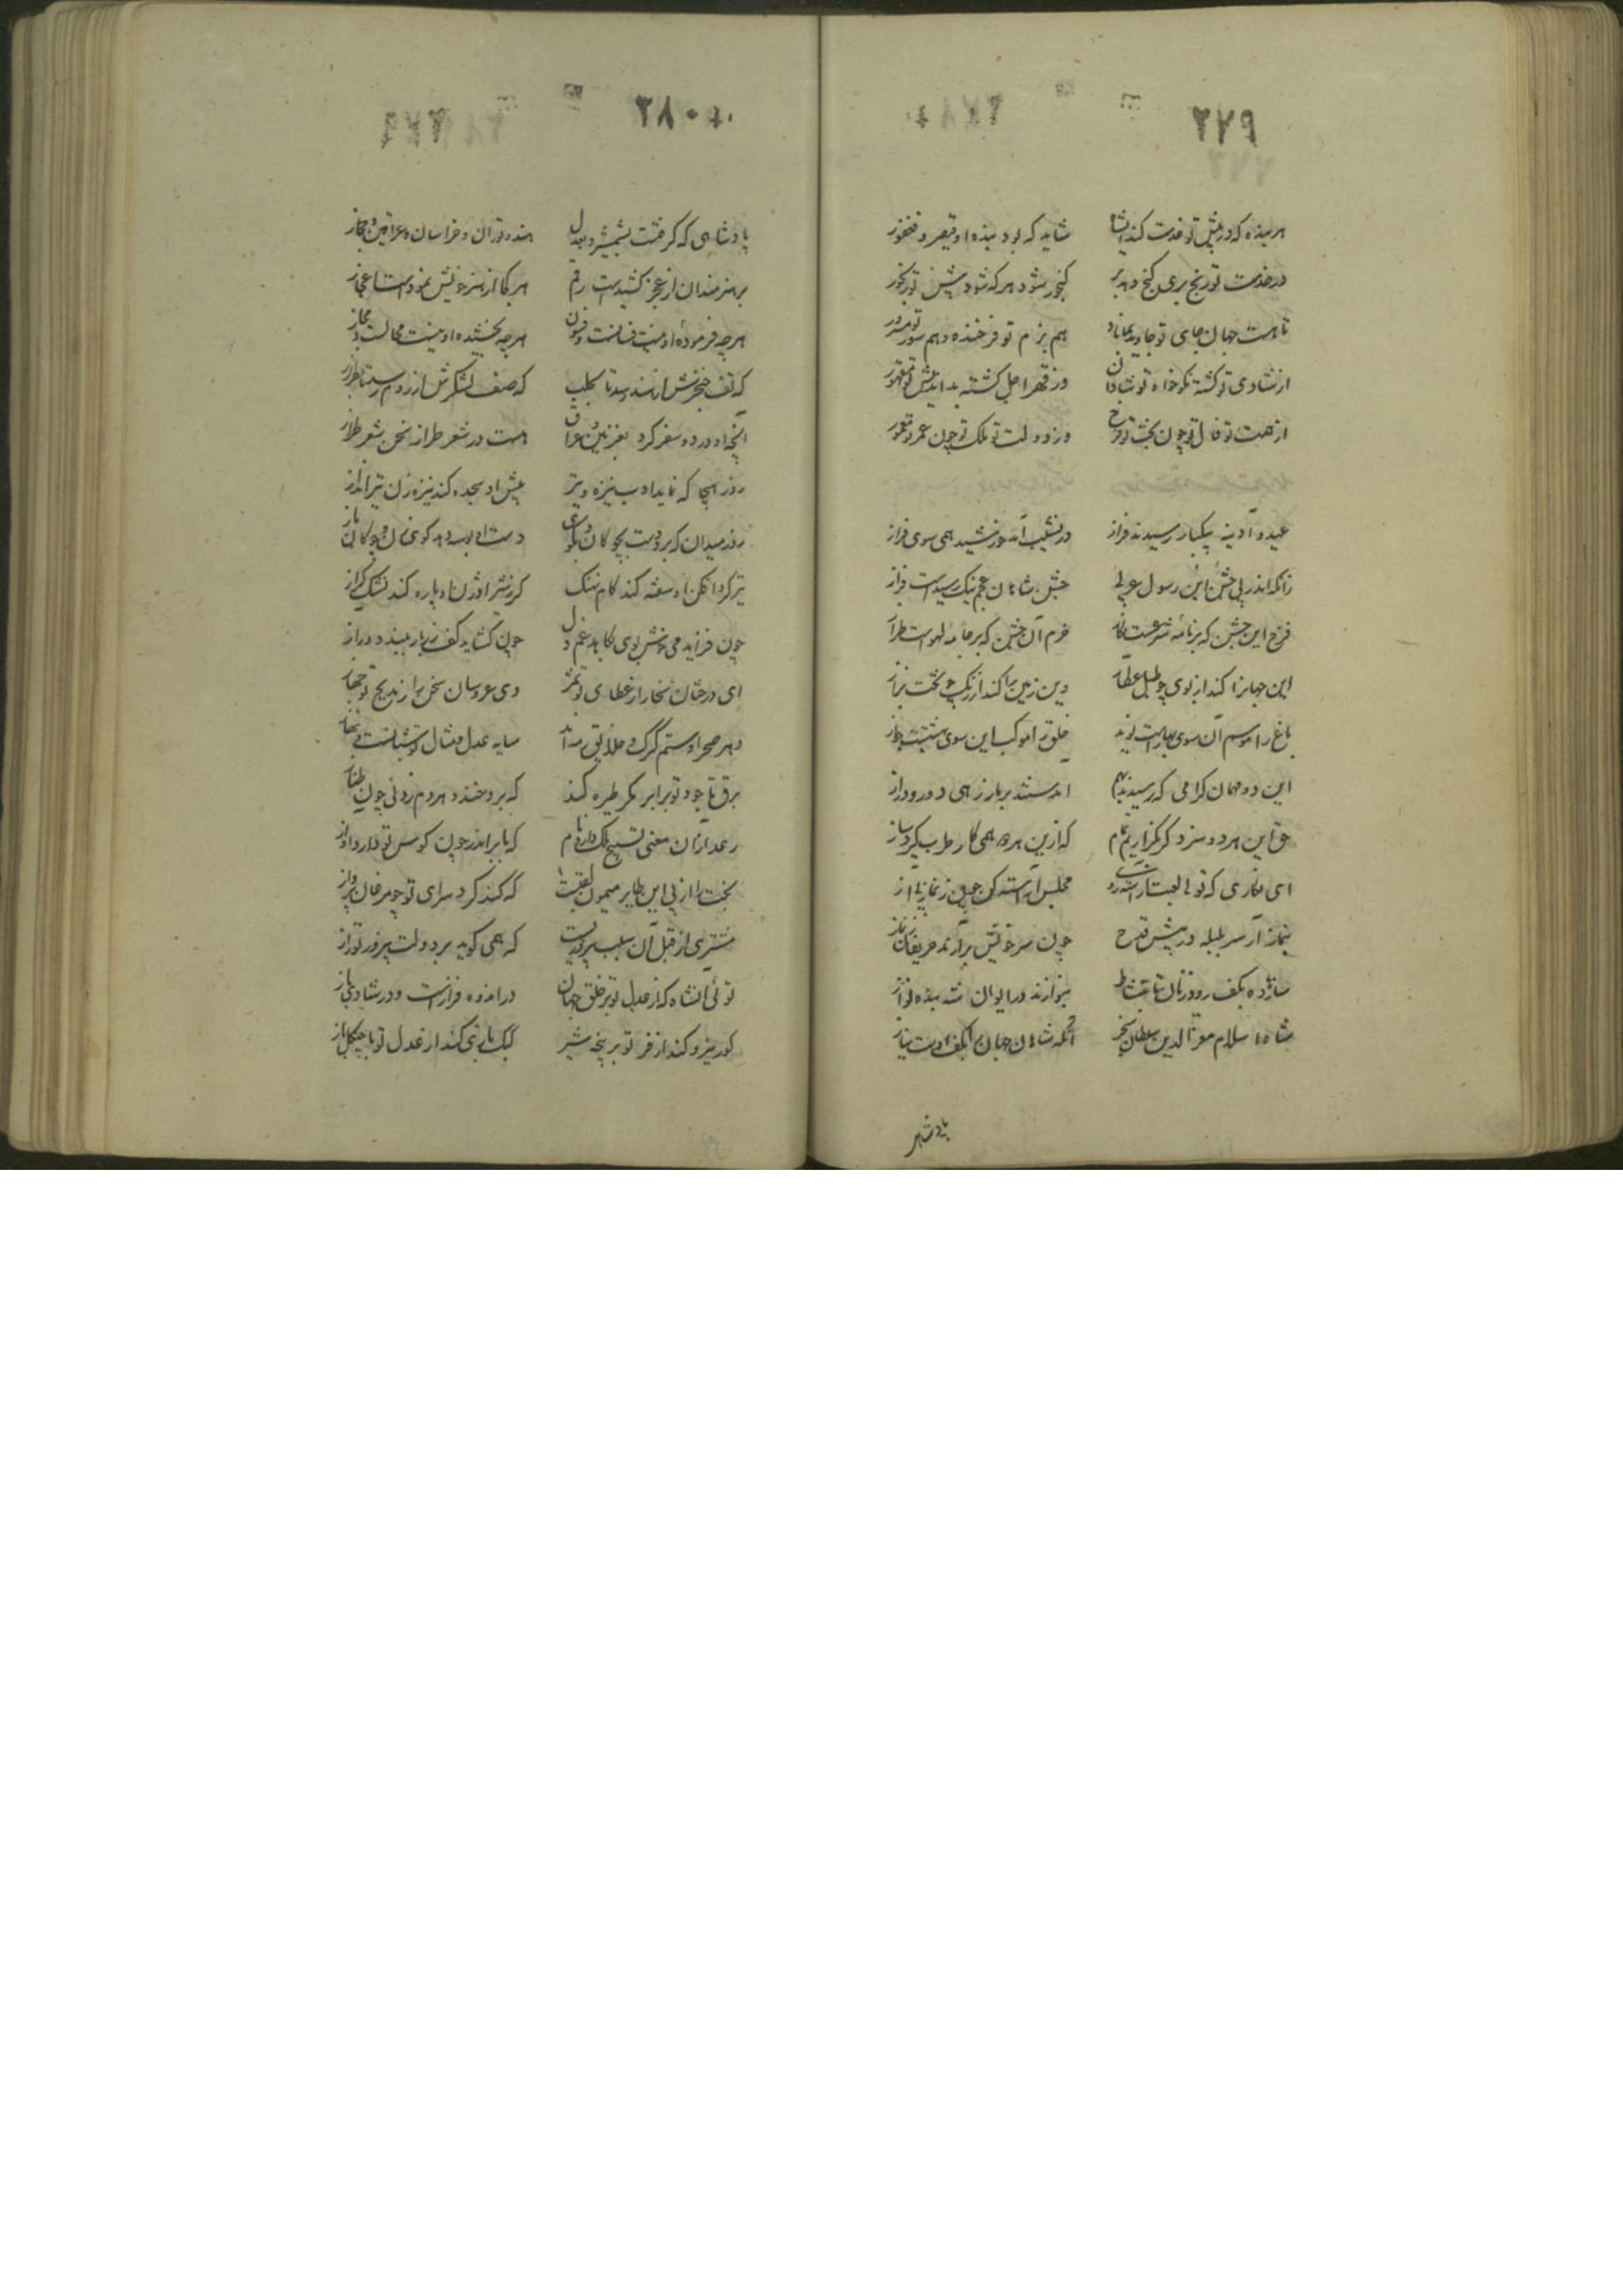 ۲۷۹
هر بنده که در پیش تو خدمت کند ای شاه شاید که بود بنده او قیصر و فغفور
در خدمت تو رنج بری گنج دهد بر گنجور شود هر که شود پیش تو رنجور
تا هست جهان جای تو جاوید بماناد هم بزم تو فرخنده و هم سور تو مسرور
از شادی تو گشته نکو خواه تو شادان وز قهر اجل گشته بد اندیش تو مقهور
از همت تو فال تو چون بخت تو فرخ وز دولت تو ملک تو چون عمر تو معمور
عید و آدینه بیکبار رسیدند فراز در نشیب آمد خورشید همی سوی فراز
زانکه اندر پی جشن این رسول عربی جشن شاهان عجم نیک رسیدست فراز
فرخ این جشن که بر نامه شرعست خرم آن جشن که بر جامه لهوست طراز
این جهانرا کند از بوی چو طبل عطار وین زمین را کند از رنگ چو تخت بزاز
باغ را موسم آن سوی بهارست نوید خلق را موکب این سوی بهشتست جواز
این دو مهمان گرامی که رسیدند بهم آمدستند بر ما ز رهی دور و دراز
حق این هر دو سزد گر بگزاریم تمام که ازین هر دو همی کار طرب گیرد ساز
ای نگاری که تو مجلس آراسته کن
بنماز آر سر بلبله در پیش قدح چون سر خویش برآرند حریفان ز نماز
ساز ده بکف رود زنان تا بنشاط بنوازند در ایوان شه بنده نواز
شاه اسلام معز الدین سلطان سنجر آنکه شاهان جهان را بکف اوست نیاز
پادشهی
۲۸۰
پادشاهی که گرفتست بشمشیر و بعدل هند و توران و خراسان و عراقین و حجاز
بر هنرمندان از عجز کشیدست رقم هر کجا از هنر خویش نمودست اعجاز
هر چه فرموده او نیست فسانست و فسون هر چه بخشیده او نیست محالست و مجاز
که تف خنجرش از هند رسد تا بحلب که صف لشکرش از روم رسد تا بطراز
آنچه او در دو سفر کرد بغزنین و عراق هست در شعر طراز سخن شعر طراز
روز هیجا که نماید ادب نیزه و تیر پیش او سجده کند نیزه زن و تیر انداز
روز میدان که برد دست بچوگان و بگوی دست او بوسه دهد گوی زن و چوگان باز
تیر گرد افکن او سفته کند کام نهنگ گرز شیر اوژن او پاره کند یشک گراز
چون فرازد می خوش بوی بکاهد غم دل چون گشاید کف زر بار ببندد در آز
ای درختان سخا را ز عطای تو ثمر وی عروسان سخن را ز مدیح تو جهاز
دهر صحرا و ستم گرگ و خلایق رمه اند سایه عدل و مثال تو شبانست و نهاز
برق با جود تو برابر مگر طیره کند که برو خندد هر دم زدنی چون طناز
رعد ازان معنی تسبیح ملک دارد نام که بابر اندر چون کوس تو دارد آواز
بخت را از پی این طایر میمون لقبست که کند گرد سرای تو چو مرغان پرواز
مشتری از قبل آن سلب که همی گوید بر دولت پیروز تو راز
توئی آنشاه که از عدل تو بر خلق جهان در اندوه فرازست و در شادی باز
گور نیرو کند از فر تو بر پنجه شیر کبک بازی کند از عدل تو با چنگل باز